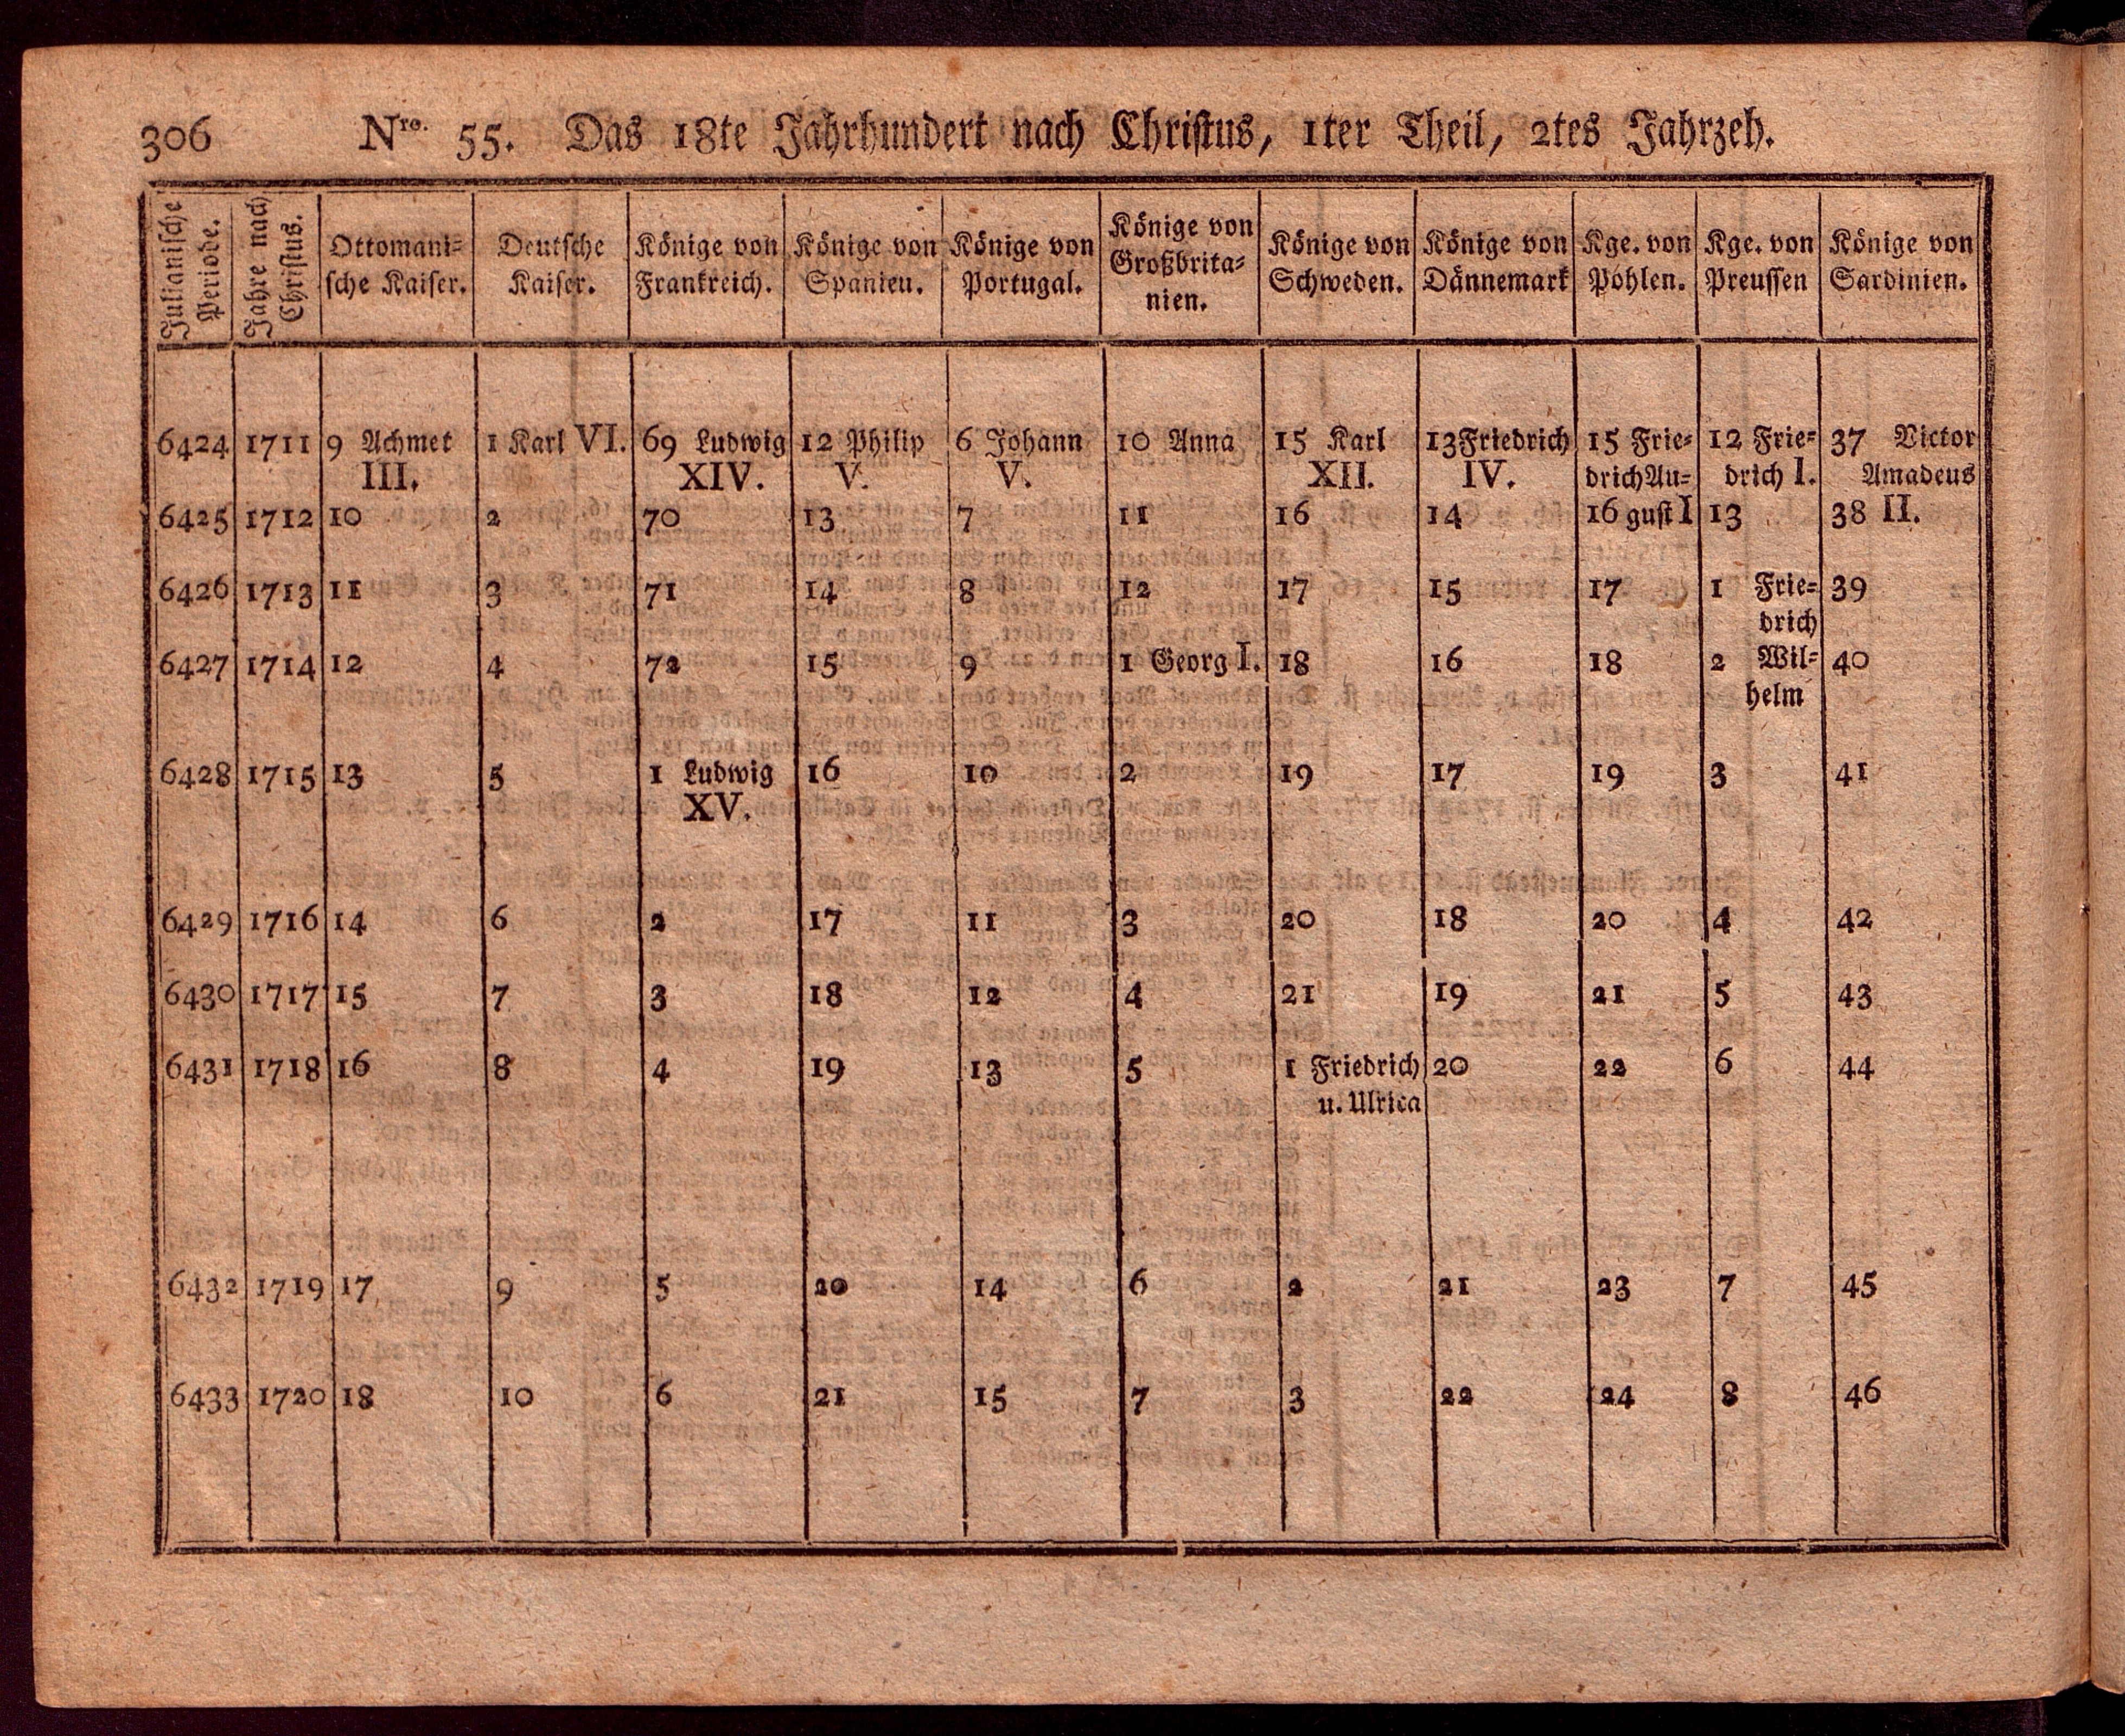 306 Nro. 55. Das 18te Jahrhundert nach Christus, 1ter Theil, 2tes Jahrzeh.
Julianische Periode. | Jahre nach Christus. | Ottomani= sche Kaiser. | Deutsche Kaiser. | Könige von Frankreich. | Könige von Spanien. | Könige von Portugal. | Könige von Großbrita= nien. | Könige von Schweden. | Könige von Dännemark | Kge. von Pohlen. | Kge. von Preussen | Könige von Sardinien.
6424 1711 9 Achmet 1 Karl VI. 69 Ludwig 12 Philip 6 Johann 10 Anna 15 Karl 13 Friedrich 15 Frie= 12 Frie= 37 Victor
III. XIV. V. V. XII. IV. drich Au= drich I. Amadeus
6425 1712 10 2 70 13 7 11 16 14 16 gust I 13 38 II.
6426 1713 11 3 71 14 8 12 17 15 17 1 Frie= 39
drich
6427 1714 12 4 72 15 9 1 Georg I. 18 16 18 2 Wil= 40
helm
6428 1715 13 5 1 Ludwig 16 10 2 19 17 19 3 41
XV.
6429 1716 14 6 2 17 11 3 20 18 20 4 42
6430 1717 15 7 3 18 12 4 21 19 21 5 43
6431 1718 16 8 4 19 13 5 1 Friedrich 20 22 6 44
u. Ulrica
6432 1719 17 9 5 20 14 6 2 21 23 7 45
6433 1720 18 10 6 21 15 7 3 22 24 8 46